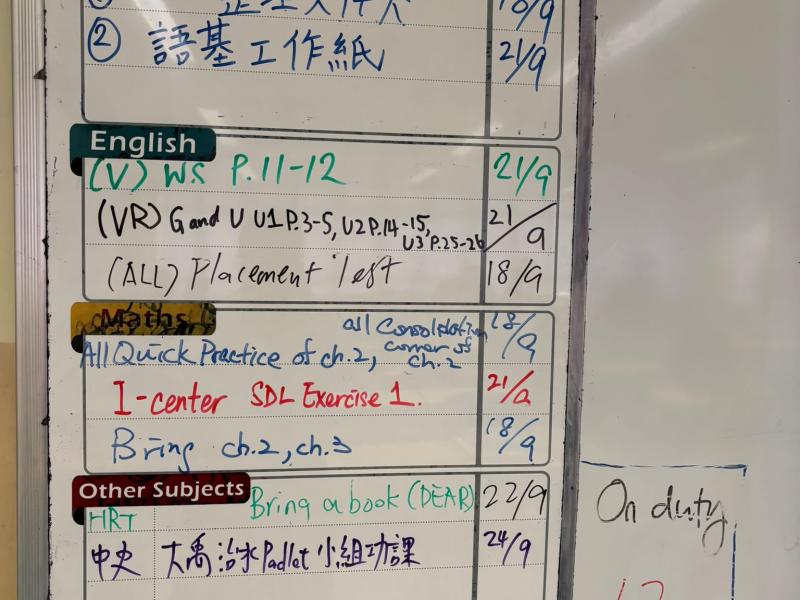 18/9
② 語基工作紙 21/9
English
(V) WS P.11-12 21/9
(VR) G and U U1 P.3-5, U2 P.14-15, U3 P.25-26 21/9
(ALL) Placement Test 18/9
Maths
All Quick Practice of ch.2, all Consolidation corner of ch.2 18/9
I-center SDL Exercise 1. 21/9
Bring ch.2, ch.3 18/9
Other Subjects
HRT Bring a book (DEAR) 22/9
中史 大禹治水Padlet小組功課 24/9
On duty